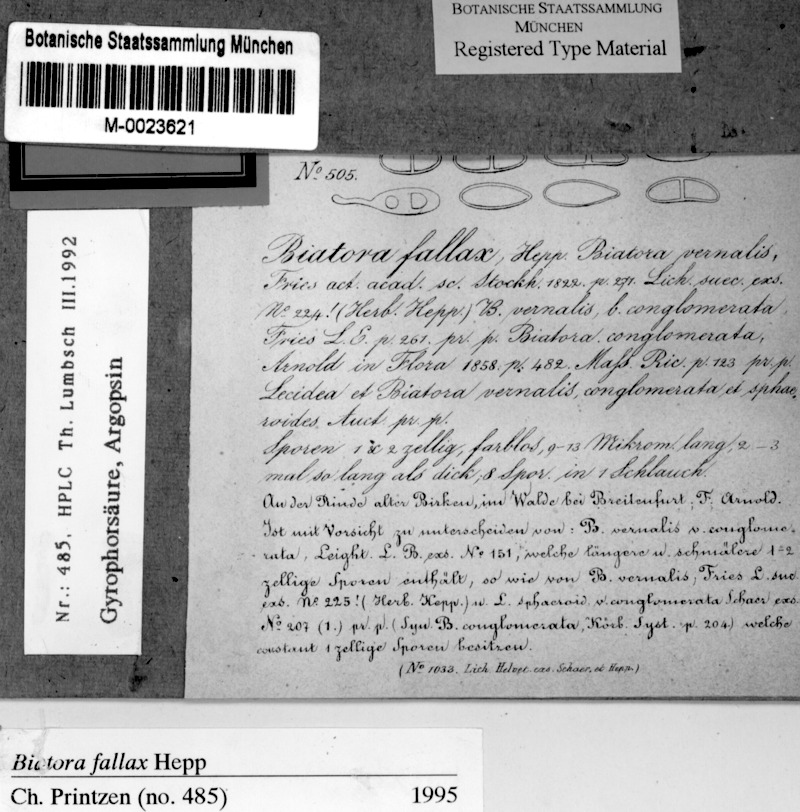 BOTANISCHE STAATSSAMMLUNG
MÜNCHEN
Registered Type Material
Botanische Staatssammlung München
M-0023621
No 505.
Biatora fallax, Hepp. Biatora vernalis,
Fries act. acad. sc. Stockh. 1822. p. 271. Lich. suec. exs.
No 224! (Herb. Hepp.) B. vernalis, b. conglomerata,
Fries L. E. p. 261. pr. p. Biatora conglomerata,
Arnold in Flora 1858. p. 482. Mass. Ric. p. 123 pr. p.
Lecidea et Biatora vernalis, conglomerata et sphae,
roides, Auct. pr. p.
Sporen 1 & 2 zellig, farblos, 9-13 Mikrom. lang, 2-3
mal so lang als dick, 8 Spor. in 1 Schlauch.
An der Rinde alter Birken, im Walde bei Breitenfurt; F. Arnold.
Ist mit Vorsicht zu unterscheiden von: B. vernalis v. conglome-
rata, Leight. L. B. exs. No 151, welche längere u. schmälere 1-2
zellige Sporen enthält, so wie von B. vernalis, Fries L. suc
exs. No 225! (Herb. Hepp.) u. L. sphaeroid. v. conglomerata Schaer exs.
No 207 (1.) pr. p. (Syn. B. conglomerata, Körb. Syst. p. 204.) welche
constant 1 zellige Sporen besitzen.
(No 1033. Lich. Helvet. exs. Schaer. et Hepp.)
Nr.: 485, HPLC Th. Lumbsch III.1992
Gyrophorsäure, Argopsin
Biatora fallax Hepp
Ch. Printzen (no. 485) 1995